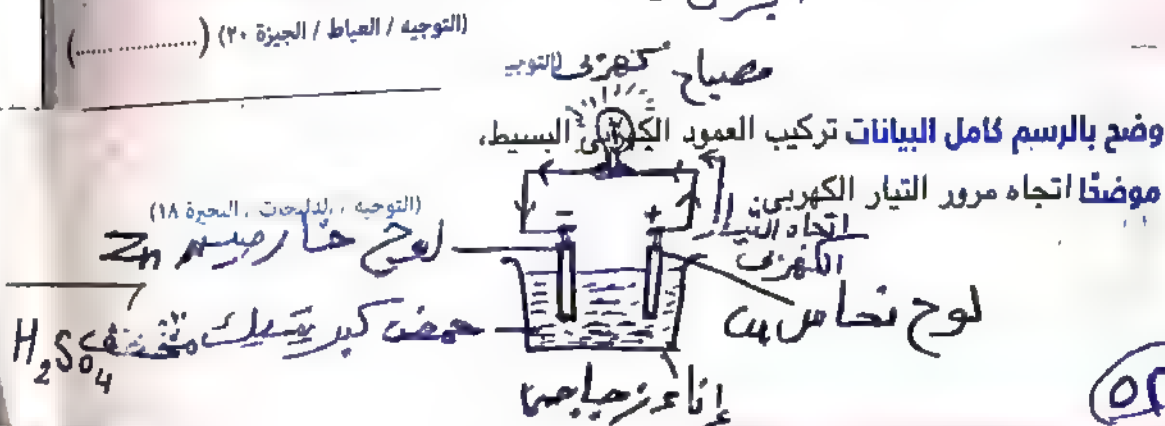 (التوجيه / العياط / الجيزة ٢٠) (..................)
مصباح كهربى (التوجيه
وضح بالرسم كامل البيانات تركيب العمود الكهربى البسيط،
موضحًا اتجاه مرور التيار الكهربى.
(التوجيه / الدلنجات / البحيرة ١٨)
اتجاه التيار
الكهربى
- +
لوح خارصين Zn
لوح نحاس Cu
حمض كبريتيك مخفف H₂SO₄
إناء زجاجى